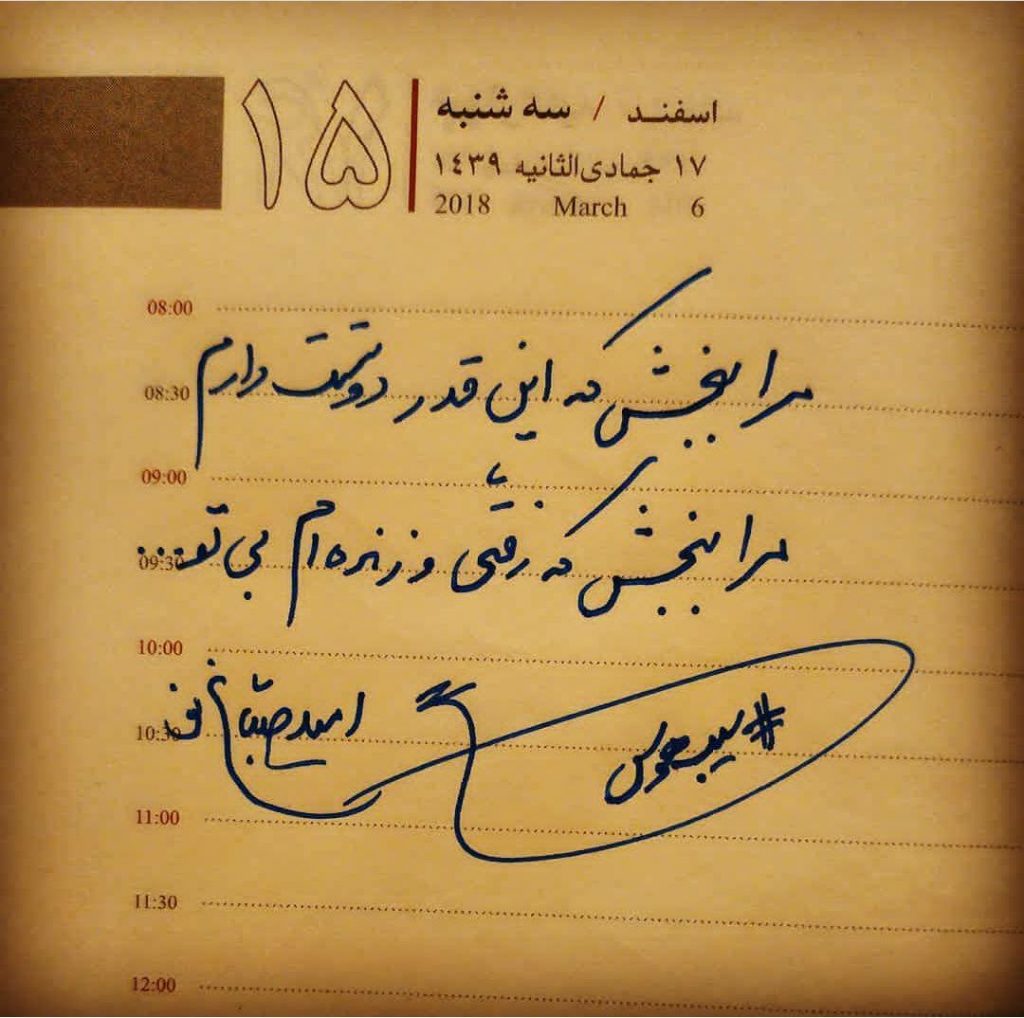 اسفند / سه شنبه
۱۵
۱۷ جمادی‌الثانیه ۱۴۳۹
6 March 2018
08:00
مرا ببخش که این قدر دوستت دارم
08:30
09:00
مرا ببخش که رفتی و زنده ام بی تو...
09:30
10:00
#سیب_هوس
امید صباغ نو
10:30
11:00
11:30
12:00